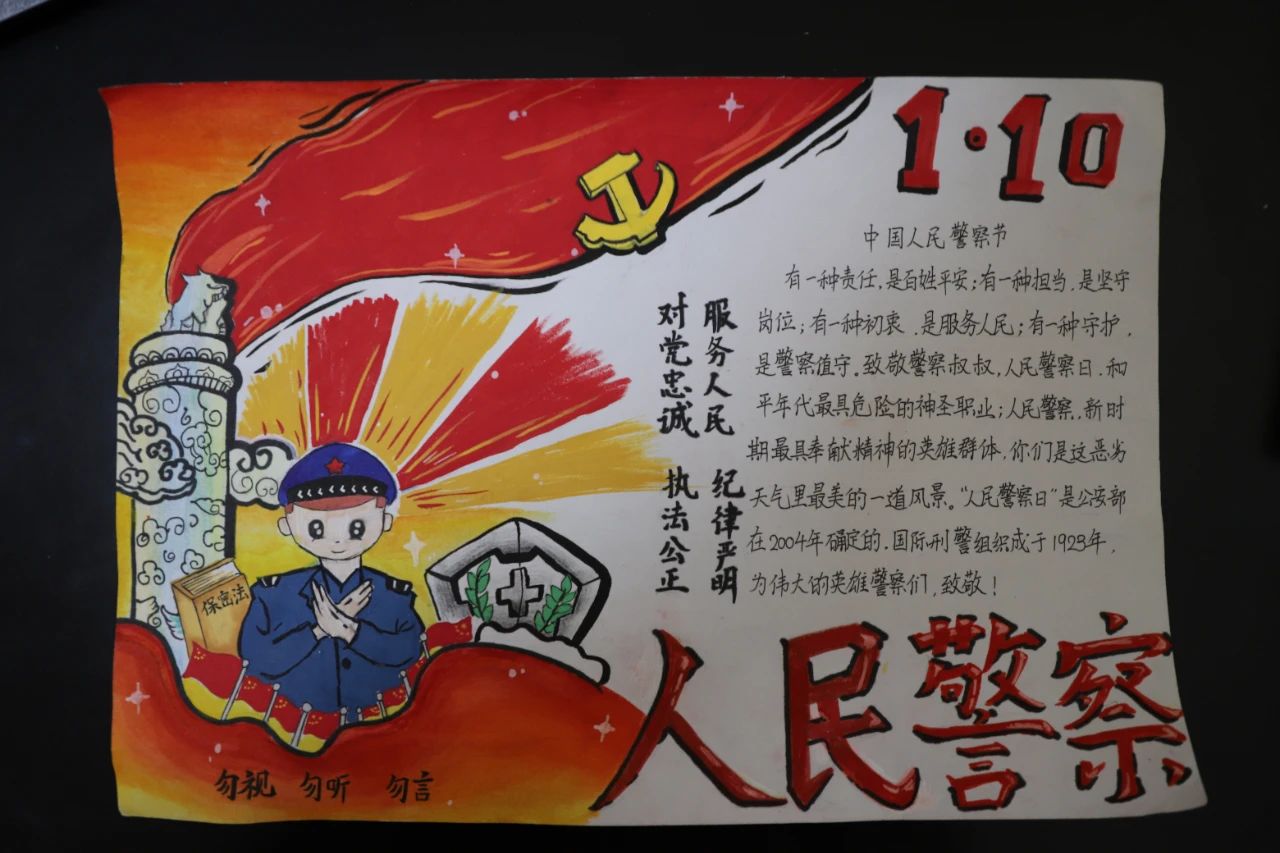 1·10
中国人民警察节
有一种责任,是百姓平安;有一种担当,是坚守
岗位;有一种初衷,是服务人民;有一种守护,
是警察值守。致敬警察叔叔,人民警察日,和
平年代最具危险的神圣职业;人民警察,新时
期最具奉献精神的英雄群体,你们是这恶劣
天气里最美的一道风景。“人民警察日”是公安部
在2004年确定的,国际刑警组织成于1923年,
为伟大的英雄警察们,致敬!
对党忠诚 执法公正
服务人民 纪律严明
保密法
勿视 勿听 勿言
人民警察